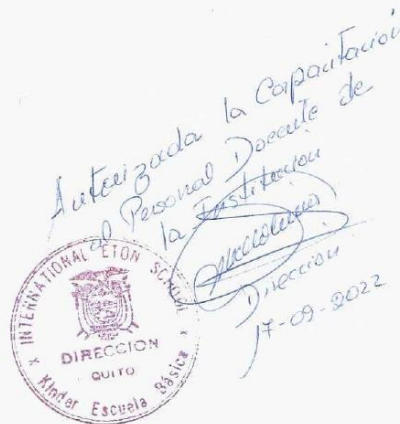 Autorizada la Capacitación
al Personal Docente de
la Institución
Dirección
17-09-2022
INTERNATIONAL ETON SCHOOL
DIRECCION
QUITO
x Kinder Escuela Básica x